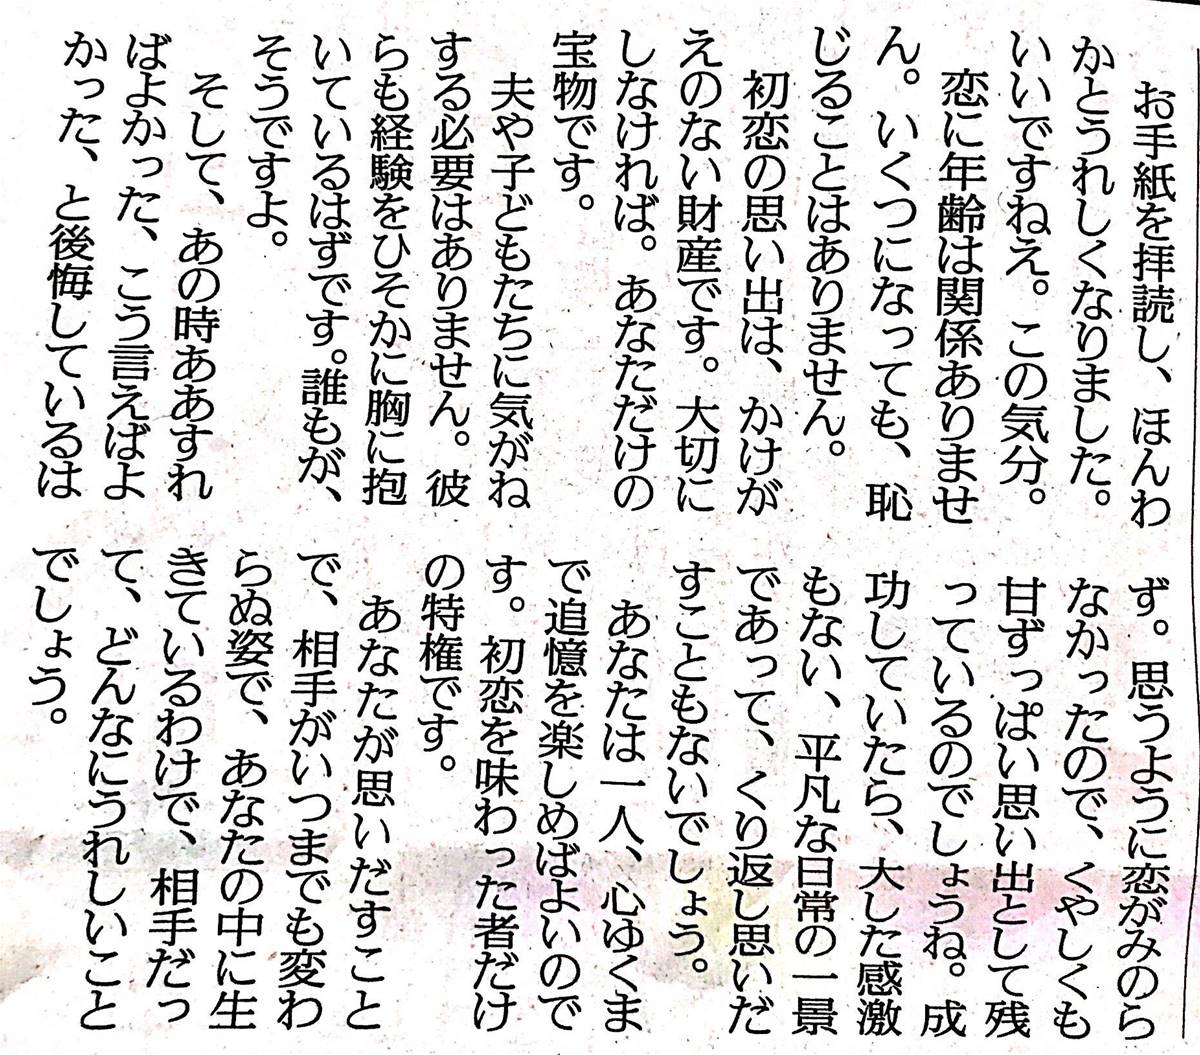 お手紙を拝読し、ほんわ
かとうれしくなりました。
いいですねえ。この気分。
恋に年齢は関係ありませ
ん。いくつになっても、恥
じることはありません。
初恋の思い出は、かけが
えのない財産です。大切に
しなければ。あなただけの
宝物です。
夫や子どもたちに気がね
する必要はありません。彼
らも経験をひそかに胸に抱
いているはずです。誰もが、
そうですよ。
そして、あの時ああすれ
ばよかった、こう言えばよ
かった、と後悔しているは
ず。思うように恋がみのら
なかったので、くやしくも
甘ずっぱい思い出として残
っているのでしょうね。成
功していたら、大した感激
もない、平凡な日常の一景
であって、くり返し思いだ
すこともないでしょう。
あなたは一人、心ゆくま
で追憶を楽しめばよいので
す。初恋を味わった者だけ
の特権です。
あなたが思いだすこと
で、相手がいつまでも変わ
らぬ姿で、あなたの中に生
きているわけで、相手だっ
て、どんなにうれしいこと
でしょう。